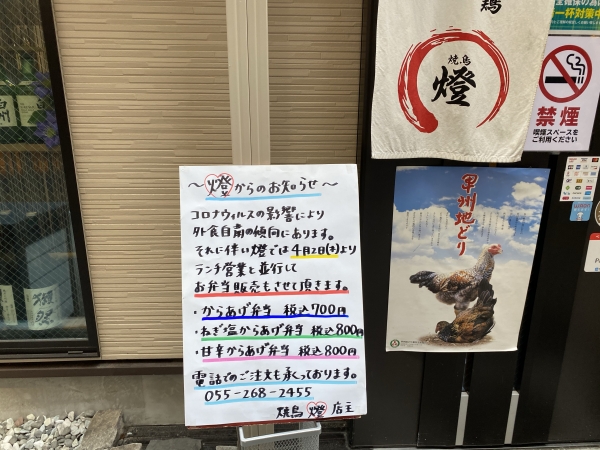 鶏
焼鳥
燈
全確保の為に
一杯対策中
禁煙
喫煙スペースを
ご利用ください
甲州地どり
白州
獺祭
～燈からのお知らせ～
コロナウィルスの影響により
外食自粛の傾向にあります。
それに伴い燈では4月2日(木)より
ランチ営業と並行して
お弁当販売もさせて頂きます。
・からあげ弁当 税込700円
・ねぎ塩からあげ弁当 税込800円
・甘辛からあげ弁当 税込800円
電話でのご注文も承っております。
055-268-2455
焼鳥 燈 店主